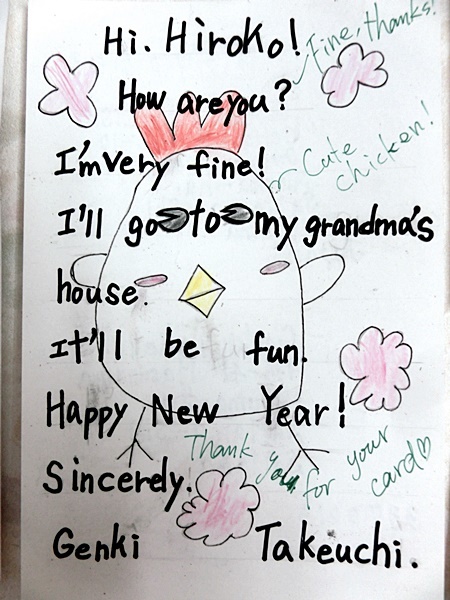 Hi. Hiroko!
Fine, thanks!
How are you?
I'm very fine!
Cute
chicken!
I'll go to my grandma's
house.
It'll be fun.
Happy New Year!
Thank you for your
card♡
Sincerely.
Genki Takeuchi.